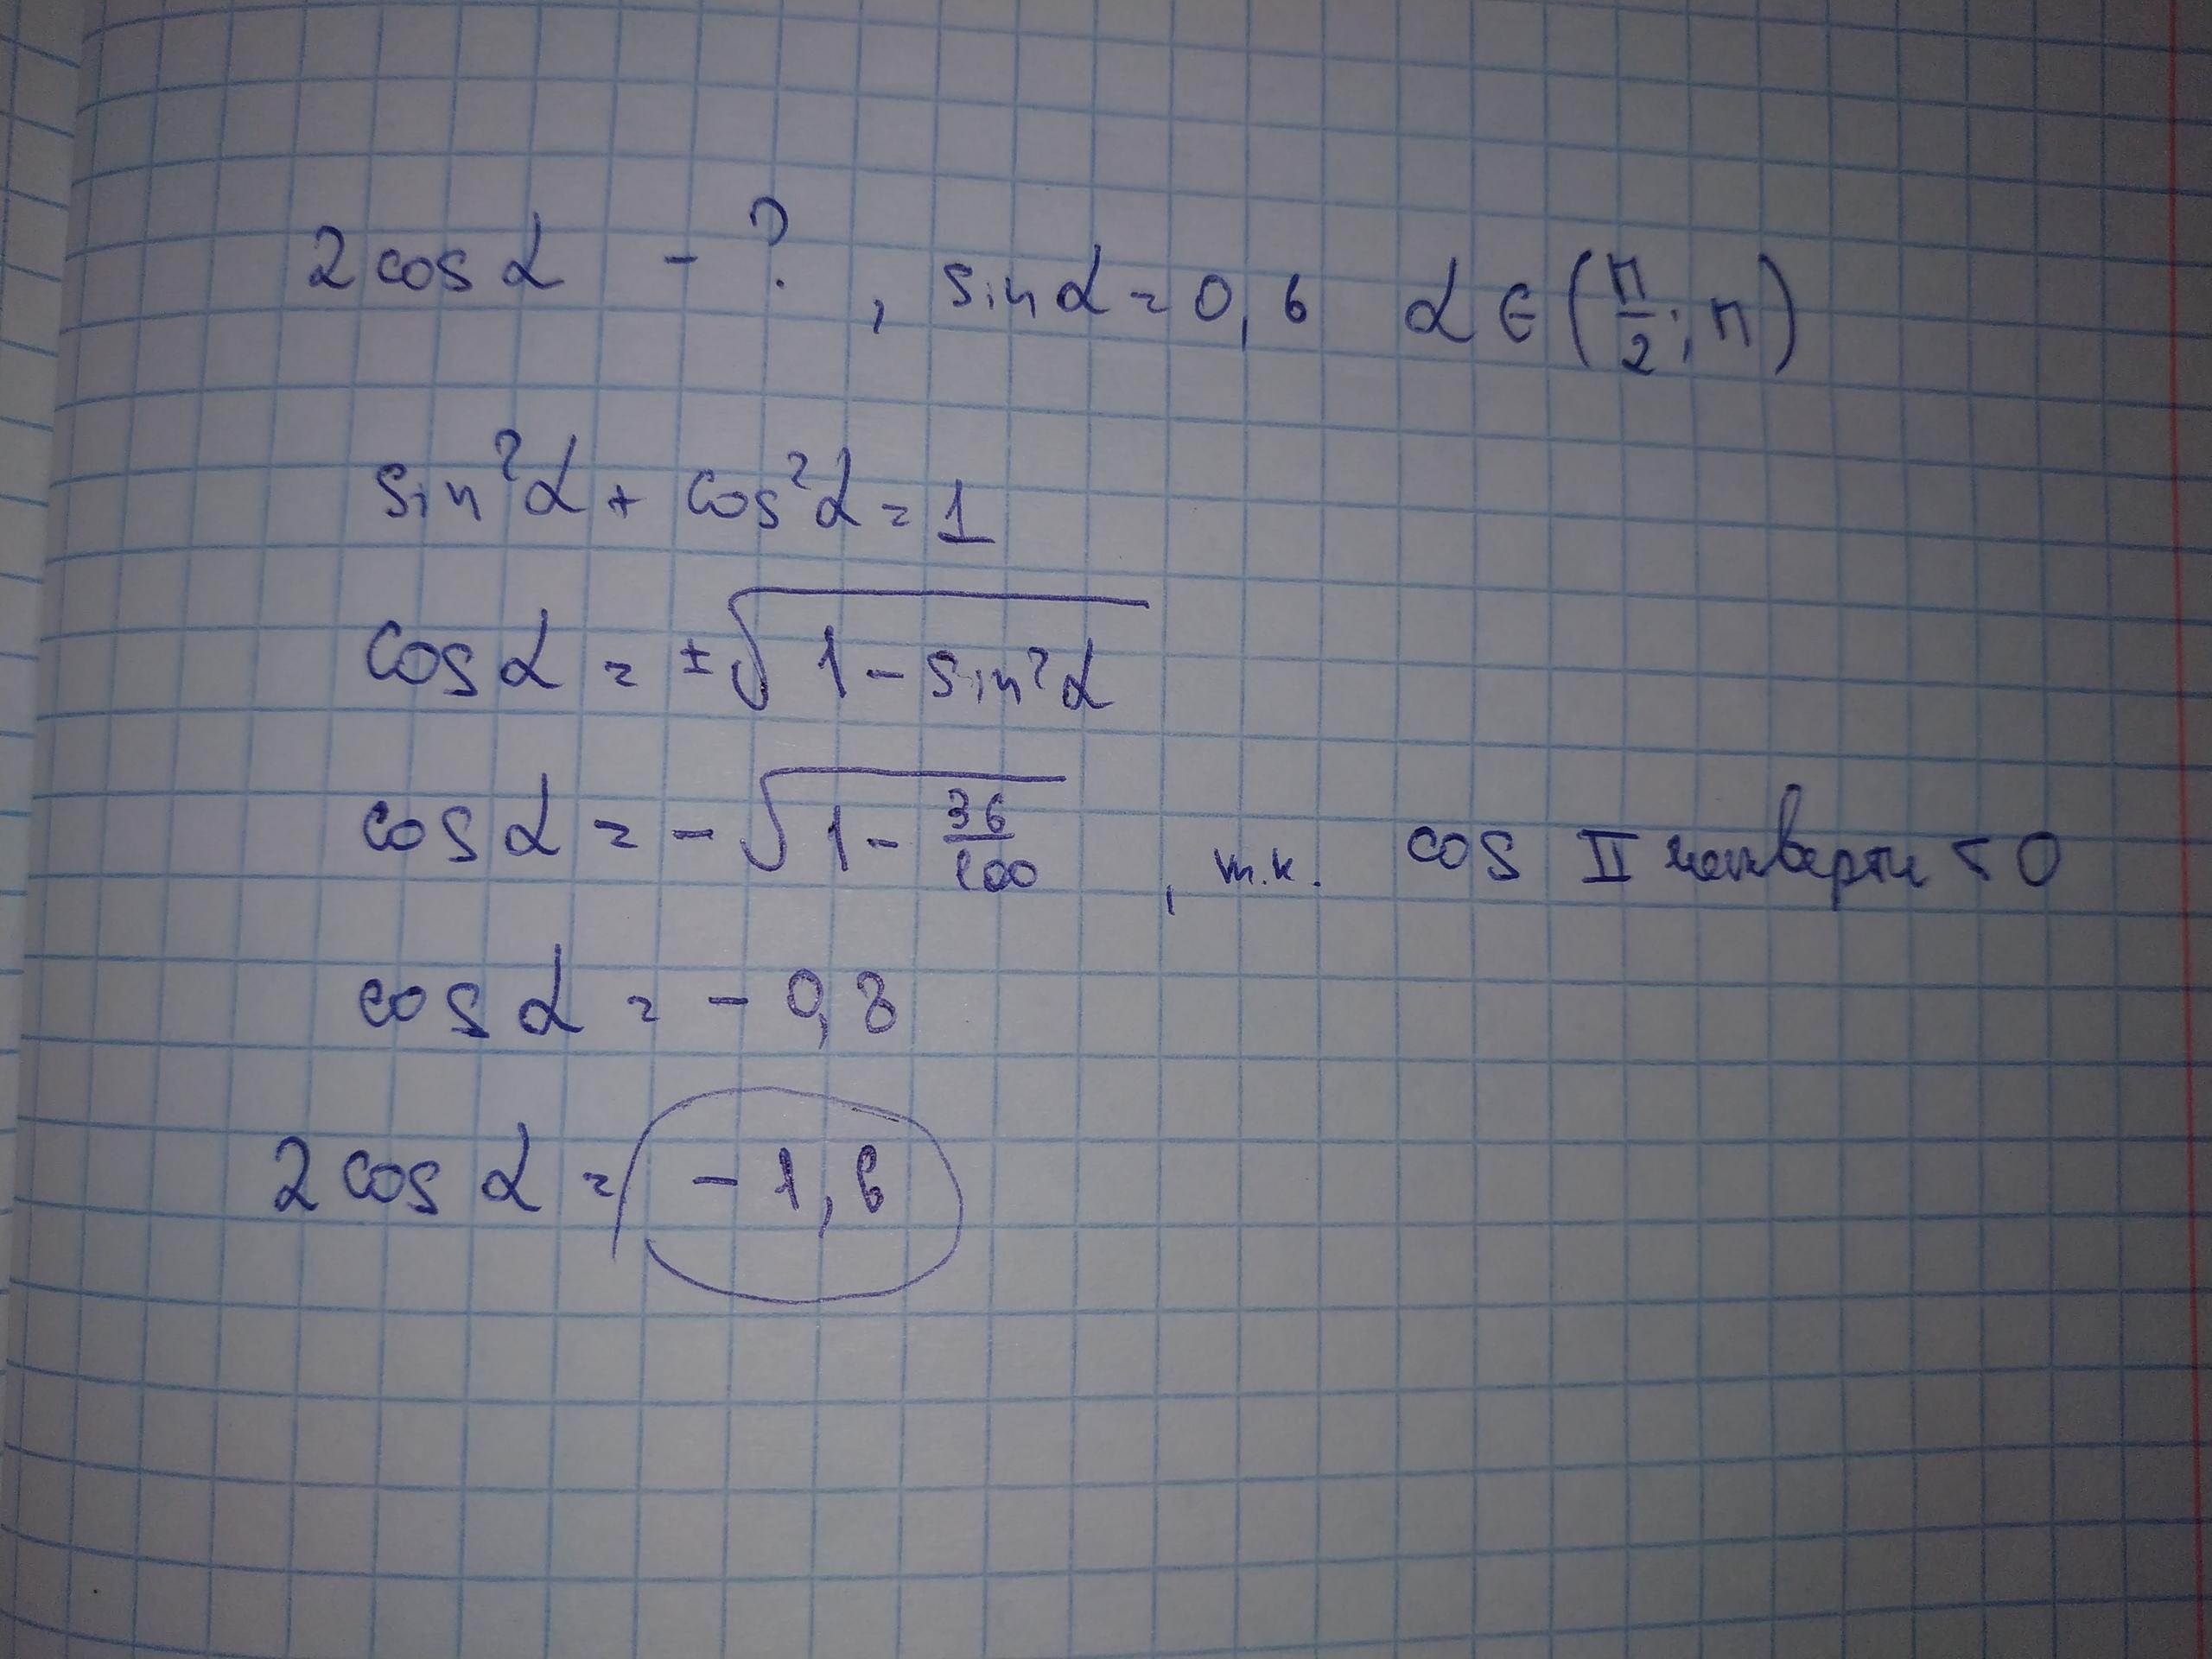 2 cos α - ?, sin α = 0,6 α ∈ (π/2; π)
sin²α + cos²α = 1
cos α = ±√(1 - sin²α)
cos α = -√(1 - 36/100), т.к. cos II четверти < 0
cos α = - 0,8
2 cos α = - 1,6